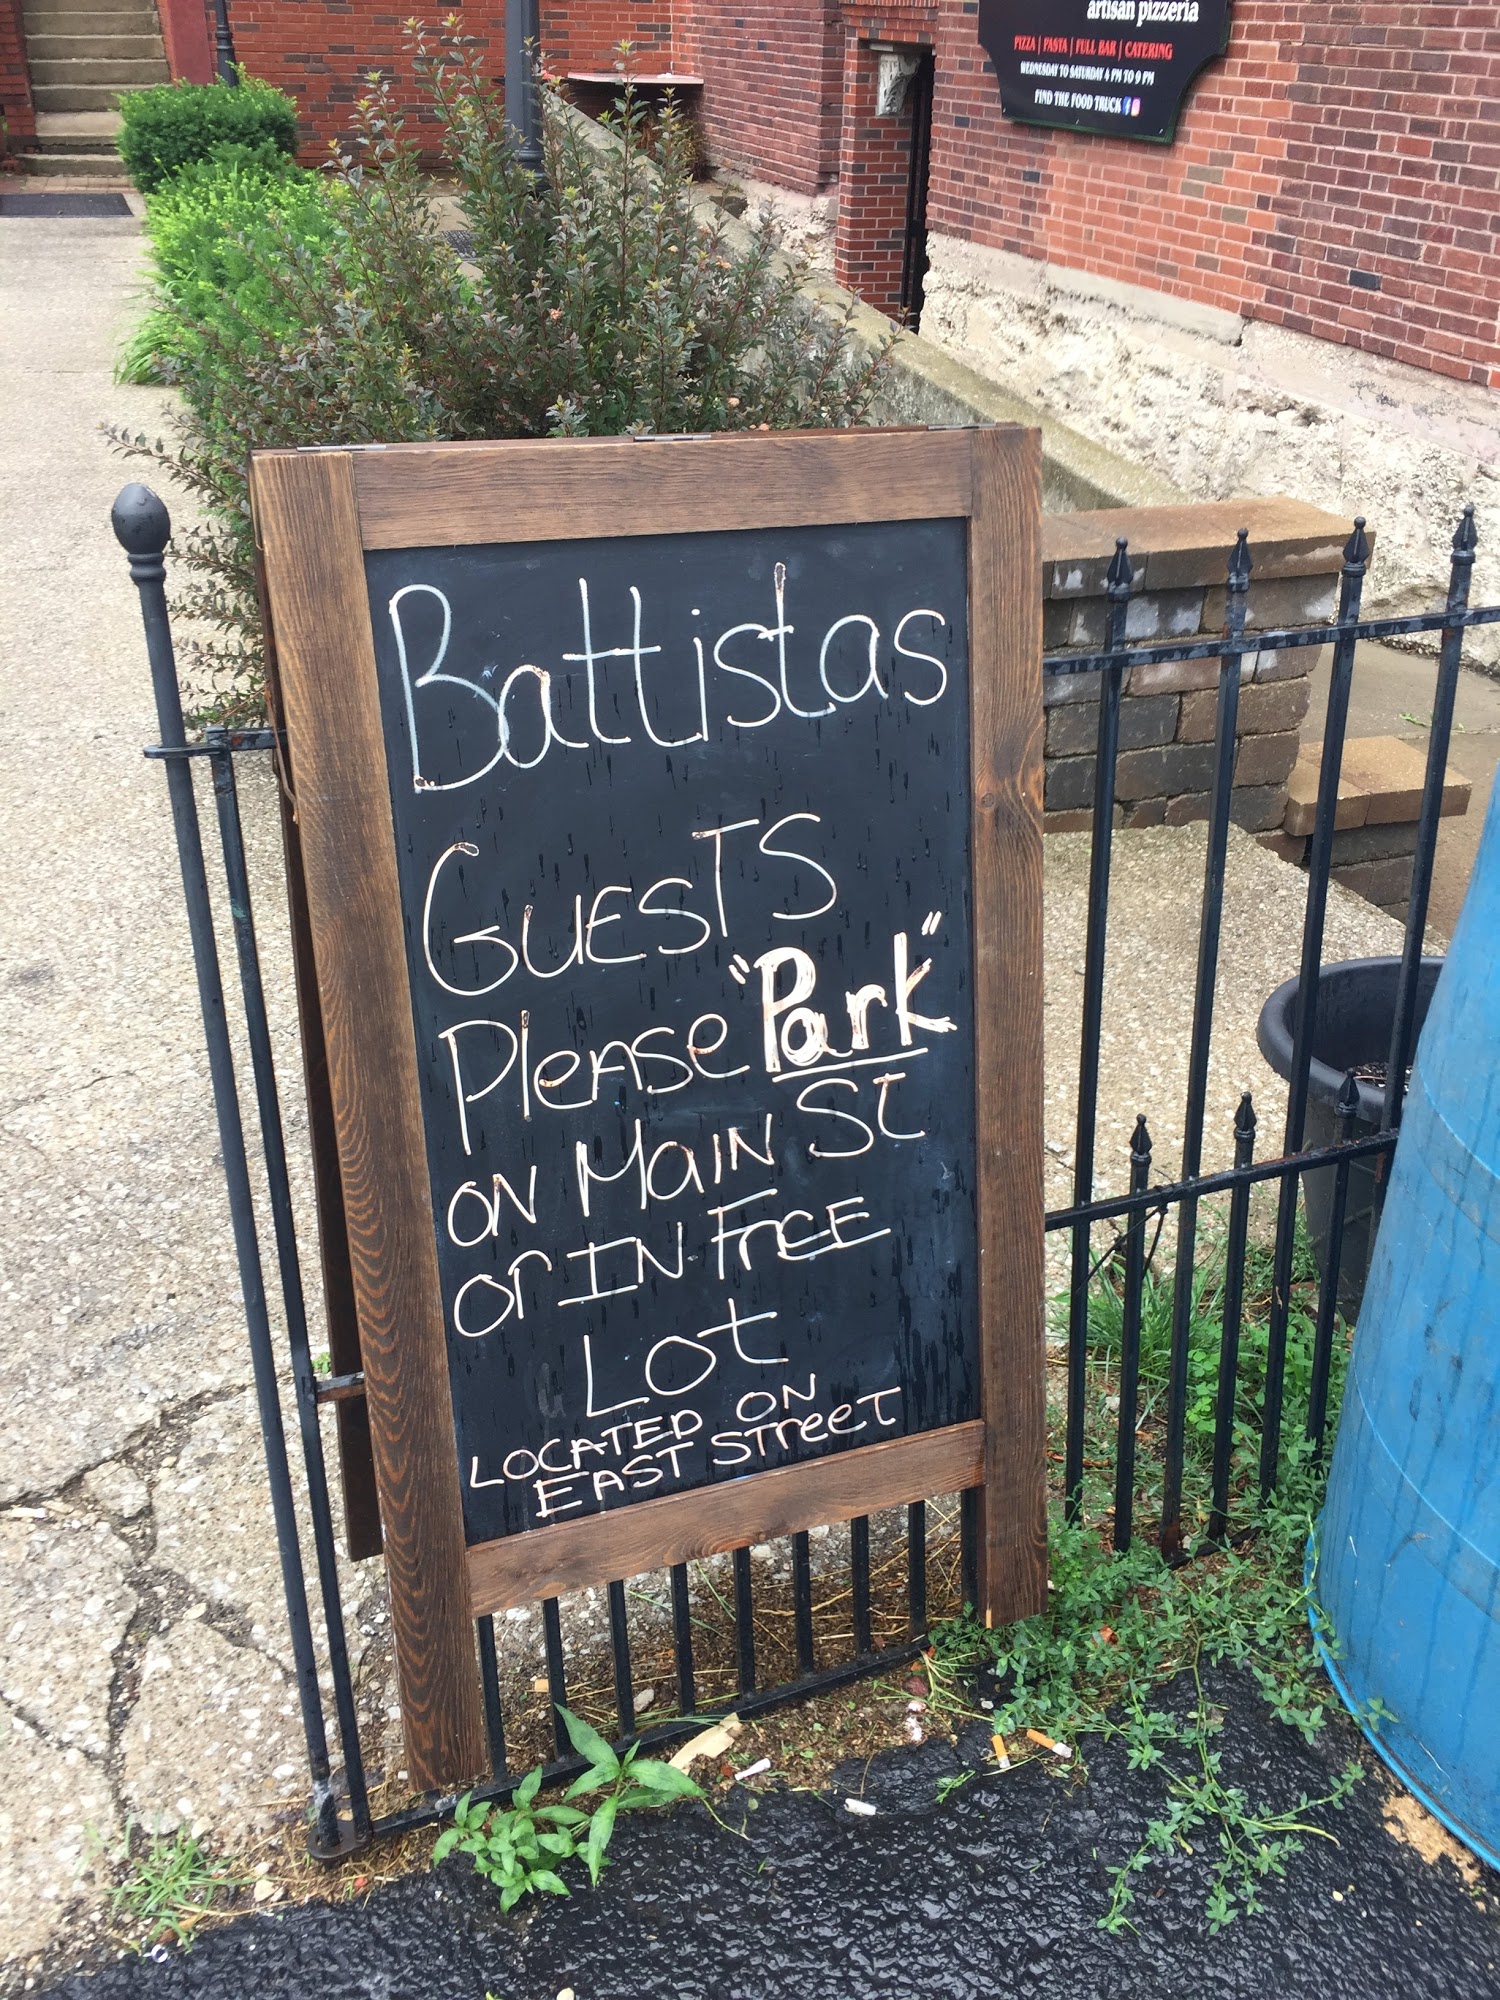 artisan pizzeria
PIZZA | PASTA | FULL BAR | CATERING
WEDNESDAY TO SATURDAY 4 PM TO 9 PM
FIND THE FOOD TRUCK
Battistas
GUESTS
PleASe "Park"
ON MaIN St
or IN FrEE
Lot
LOCATED ON
EAST STreeT